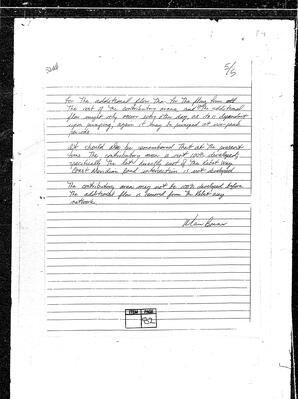 5/5
for the additional flow than for the flow from all
the rest of the contributory area and the additional
flow might only occur every other day, as it is dependent
upon pumping, again it may be pumped at non-peak
periods.
It should also be remembered that at the present
time the contributory area is not 100% developed,
specifically the lot directly east of the
Coast Meridian Road intersection is not developed.
The contributory area may not be 100% developed before
the additional flow is removed from the
network.
ITEM PAGE